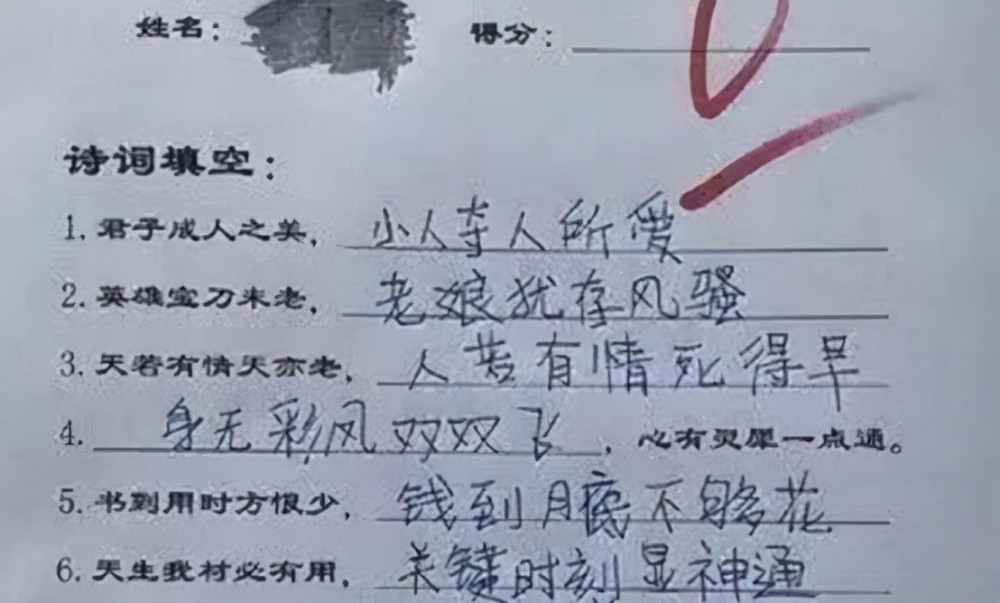 姓名： 得分：
诗词填空：
1. 君子成人之美，小人夺人所爱
2. 英雄宝刀未老，老娘犹存风骚
3. 天若有情天亦老，人若有情死得早
4. 身无彩风双双飞，心有灵犀一点通。
5. 书到用时方恨少，钱到月底不够花
6. 天生我材必有用，关键时刻显神通